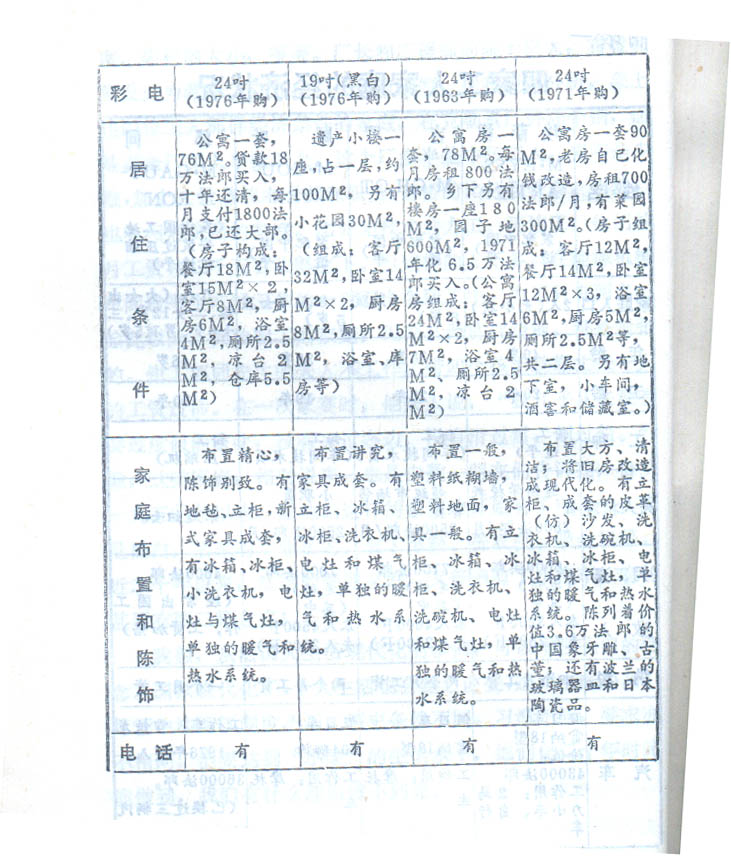 彩 电
24吋
(1976年购)
19吋(黑白)
(1976年购)
24吋
(1963年购)
24吋
(1971年购)
居
住
条
件
公寓一套，
76M²。贷款18
万法郎买入，
十年还清，每
月支付1800法
郎，已还大部。
(房子构成：
餐厅18M²，卧
室15M²×2，
客厅8M²，厨
房6M²，浴室
4M²，厕所2.5
M²，凉台2
M²，仓库5.5
M²)
遗产小楼一
座，占一层，约
100M²，另有
小花园30M²，
(组成：客厅
32M²，卧室14
M²×2，厨房
8M²，厕所2.5
M²，浴室、库
房等)
公寓房一
套，78M²。每
月房租800法
郎。乡下另有
楼房一座180
M²，园子地
600M²，1971
年化6.5万法
郎买入。(公寓
房组成：客厅
24M²，卧室14
M²×2，厨房
7M²，浴室4
M²、厕所2.5
M²，凉台2
M²)
公寓房一套90
M²，老房自己化
钱改造，房租700
法郎/月，有菜园
300M²。(房子组
成：客厅12M²，
餐厅14M²，卧室
12M²×3，浴室
6M²，厨房5M²，
厕所2.5M²等，
共二层。另有地
下室，小车间，
酒窖和储藏室。)
家
庭
布
置
和
陈
饰
布置精心，
陈饰别致。有
地毯、立柜，新
式家具成套，
有冰箱、冰柜、
小洗衣机，电
灶与煤气灶，
单独的暖气和
热水系统。
布置讲究，
家具成套。有
立柜、冰箱、
冰柜、洗衣机、
电灶和煤气
灶，单独的暖
气和热水系
统。
布置一般，
塑料纸糊墙，
塑料地面，家
具一般。有立
柜、冰箱、冰
柜、洗衣机、
洗碗机、电灶
和煤气灶，单
独的暖气和热
水系统。
布置大方、清
洁；将旧房改造
成现代化。有立
柜、成套的皮革
(仿)沙发、洗
衣机、洗碗机、
冰箱、冰柜、电
灶和煤气灶，单
独的暖气和热水
系统。陈列着价
值3.6万法郎的
中国象牙雕、古
董；还有波兰的
玻璃器皿和日本
陶瓷品。
电 话
有
有
有
有